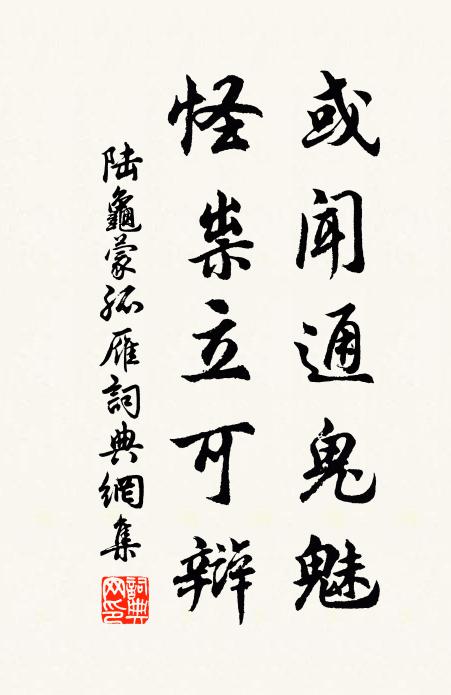 或聞通鬼魅
怪祟立可辯
陸龜蒙孤雁詞典網集
詞典
网印